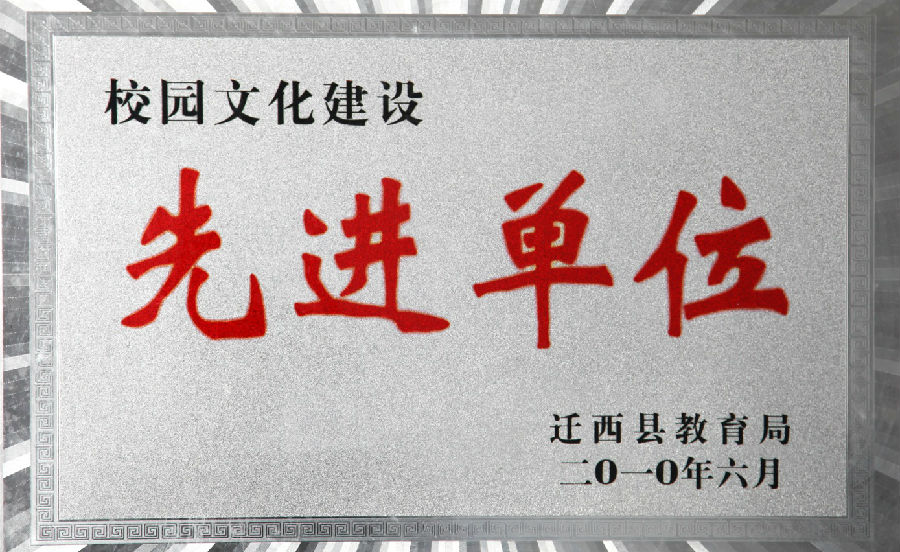 校园文化建设
先进单位
迁西县教育局
二〇一〇年六月